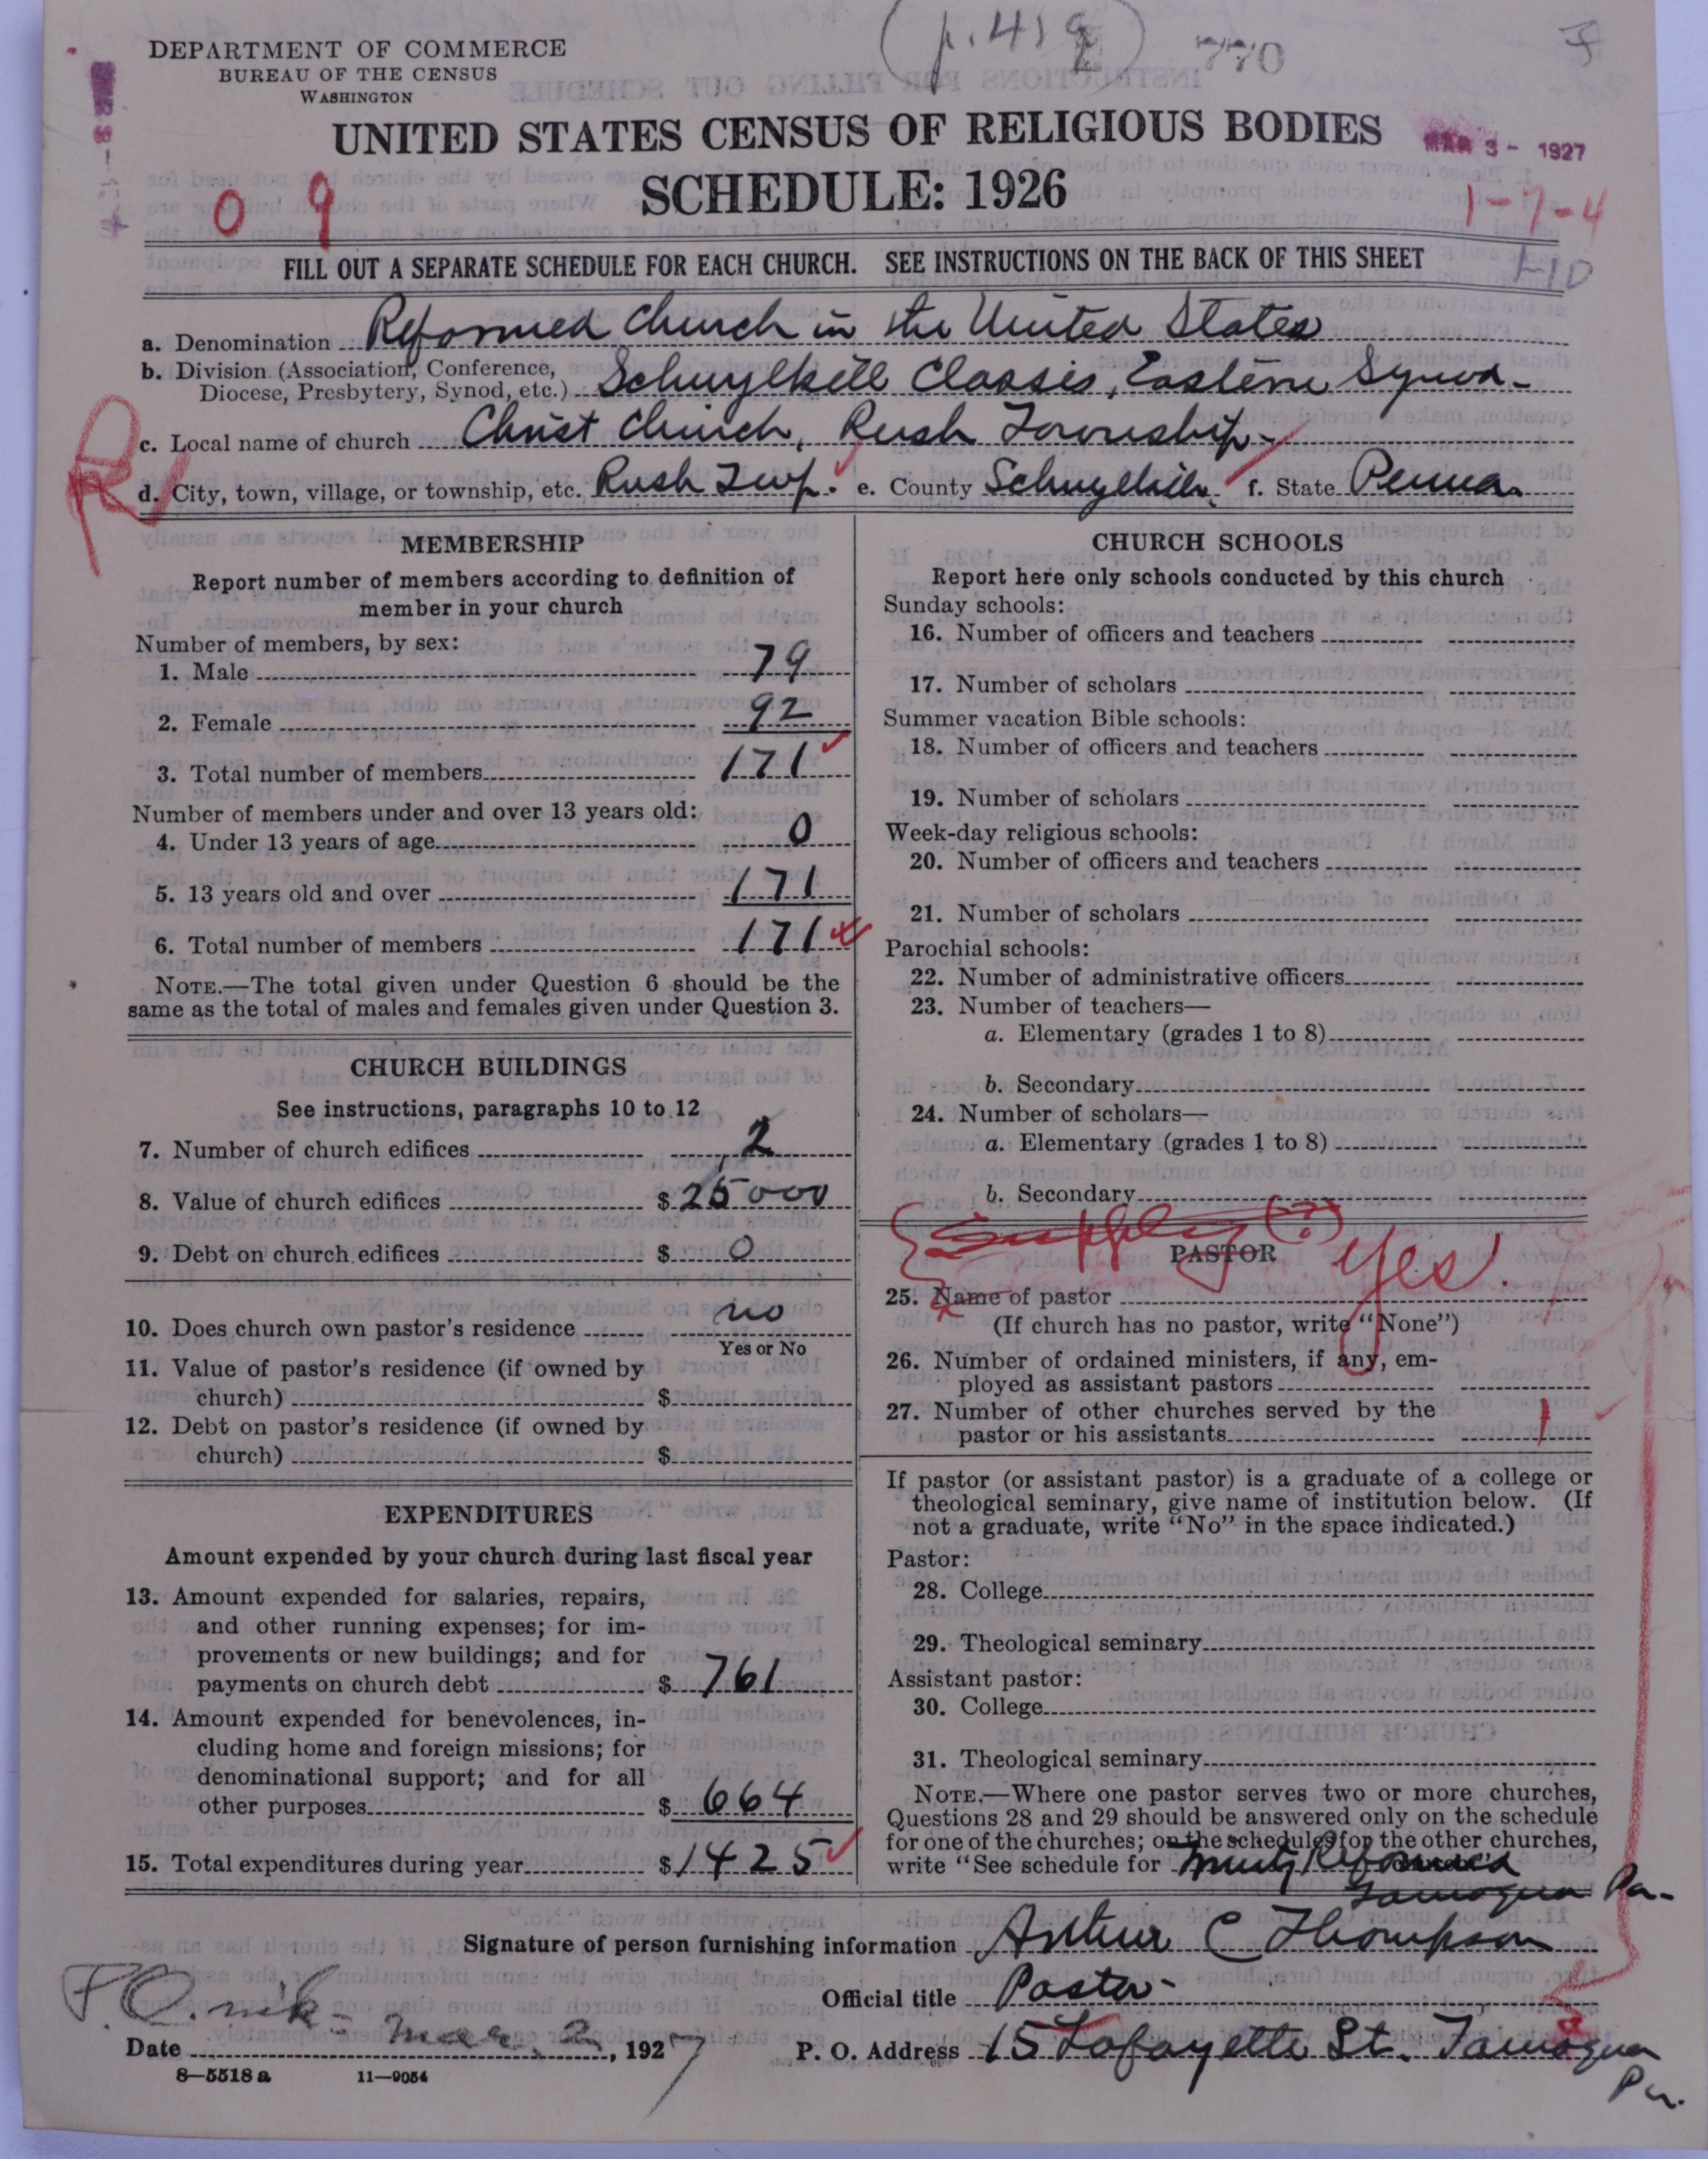 (p. 419) 770
DEPARTMENT OF COMMERCE
BUREAU OF THE CENSUS
WASHINGTON
UNITED STATES CENSUS OF RELIGIOUS BODIES
MAR 3 - 1927
SCHEDULE: 1926
0 9
1-7-4
FILL OUT A SEPARATE SCHEDULE FOR EACH CHURCH. SEE INSTRUCTIONS ON THE BACK OF THIS SHEET
a. Denomination Reformed Church in the United States
b. Division (Association, Conference, Diocese, Presbytery, Synod, etc.) Schuylkill Classis, Eastern Synod-
c. Local name of church Christ Church, Rush Township-
R d. City, town, village, or township, etc. Rush Twp. e. County Schuylkill. f. State Penna.
MEMBERSHIP
Report number of members according to definition of
member in your church
Number of members, by sex:
1. Male 79
2. Female 92
3. Total number of members 171
Number of members under and over 13 years old:
4. Under 13 years of age 0
5. 13 years old and over 171
6. Total number of members 171
NOTE.—The total given under Question 6 should be the
same as the total of males and females given under Question 3.
CHURCH BUILDINGS
See instructions, paragraphs 10 to 12
7. Number of church edifices 2
8. Value of church edifices $ 25000
9. Debt on church edifices $ 0
10. Does church own pastor's residence no
Yes or No
11. Value of pastor's residence (if owned by
church) $
12. Debt on pastor's residence (if owned by
church) $
EXPENDITURES
Amount expended by your church during last fiscal year
13. Amount expended for salaries, repairs,
and other running expenses; for im-
provements or new buildings; and for
payments on church debt $ 761
14. Amount expended for benevolences, in-
cluding home and foreign missions; for
denominational support; and for all
other purposes $ 664
15. Total expenditures during year $ 1425
CHURCH SCHOOLS
Report here only schools conducted by this church
Sunday schools:
16. Number of officers and teachers
17. Number of scholars
Summer vacation Bible schools:
18. Number of officers and teachers
19. Number of scholars
Week-day religious schools:
20. Number of officers and teachers
21. Number of scholars
Parochial schools:
22. Number of administrative officers
23. Number of teachers—
a. Elementary (grades 1 to 8)
b. Secondary
24. Number of scholars—
a. Elementary (grades 1 to 8)
b. Secondary
Supply (?)
PASTOR Yes.
25. Name of pastor
(If church has no pastor, write "None")
26. Number of ordained ministers, if any, em-
ployed as assistant pastors
27. Number of other churches served by the
pastor or his assistants 1
If pastor (or assistant pastor) is a graduate of a college or
theological seminary, give name of institution below. (If
not a graduate, write "No" in the space indicated.)
Pastor:
28. College
29. Theological seminary
Assistant pastor:
30. College
31. Theological seminary
NOTE.—Where one pastor serves two or more churches,
Questions 28 and 29 should be answered only on the schedule
for one of the churches; on the schedules for the other churches,
write "See schedule for Trinity Reformed
Tamaqua Pa-
Signature of person furnishing information Arthur C Thompson
Official title Pastor-
Date Mar. 2, 1927
P. O. Address 15 Lafayette St. Tamaqua
Pa.
8—5518 a 11—9054